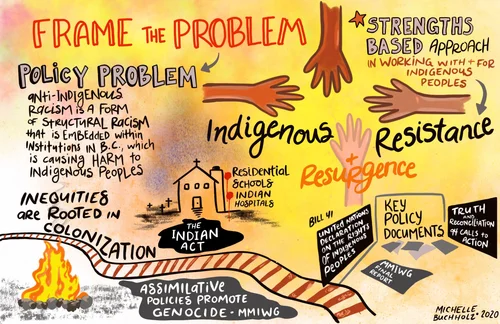 FRAME THE PROBLEM
★ STRENGTHS
BASED APPROACH
IN WORKING WITH + FOR
INDIGENOUS
PEOPLES
POLICY PROBLEM
ANTI-INDIGENOUS
RACISM IS A FORM
OF STRUCTURAL RACISM
THAT IS EMBEDDED WITHIN
INSTITUTIONS IN B.C., WHICH
IS CAUSING HARM TO
INDIGENOUS PEOPLES
Indigenous
Resistance
+
Resurgence
INEQUITIES
ARE ROOTED IN
COLONIZATION
RESIDENTIAL
SCHOOLS
INDIAN
HOSPITALS
THE
INDIAN
ACT
ASSIMILATIVE
POLICIES PROMOTE
GENOCIDE - MMIWG
BILL 41
UNITED NATIONS
DECLARATION
ON THE RIGHTS
OF INDIGENOUS
PEOPLES
KEY
POLICY
DOCUMENTS
MMIWG
FINAL
REPORT
TRUTH
AND
RECONCILIATION
94 CALLS TO
ACTION
MICHELLE
BUCHHOLZ • 2020